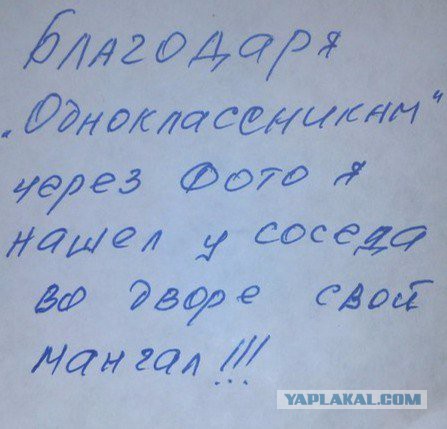 Благодаря
„Одноклассникам"
через фото я
нашел у соседа
во дворе свой
мангал!!!
YAPLAKAL.COM